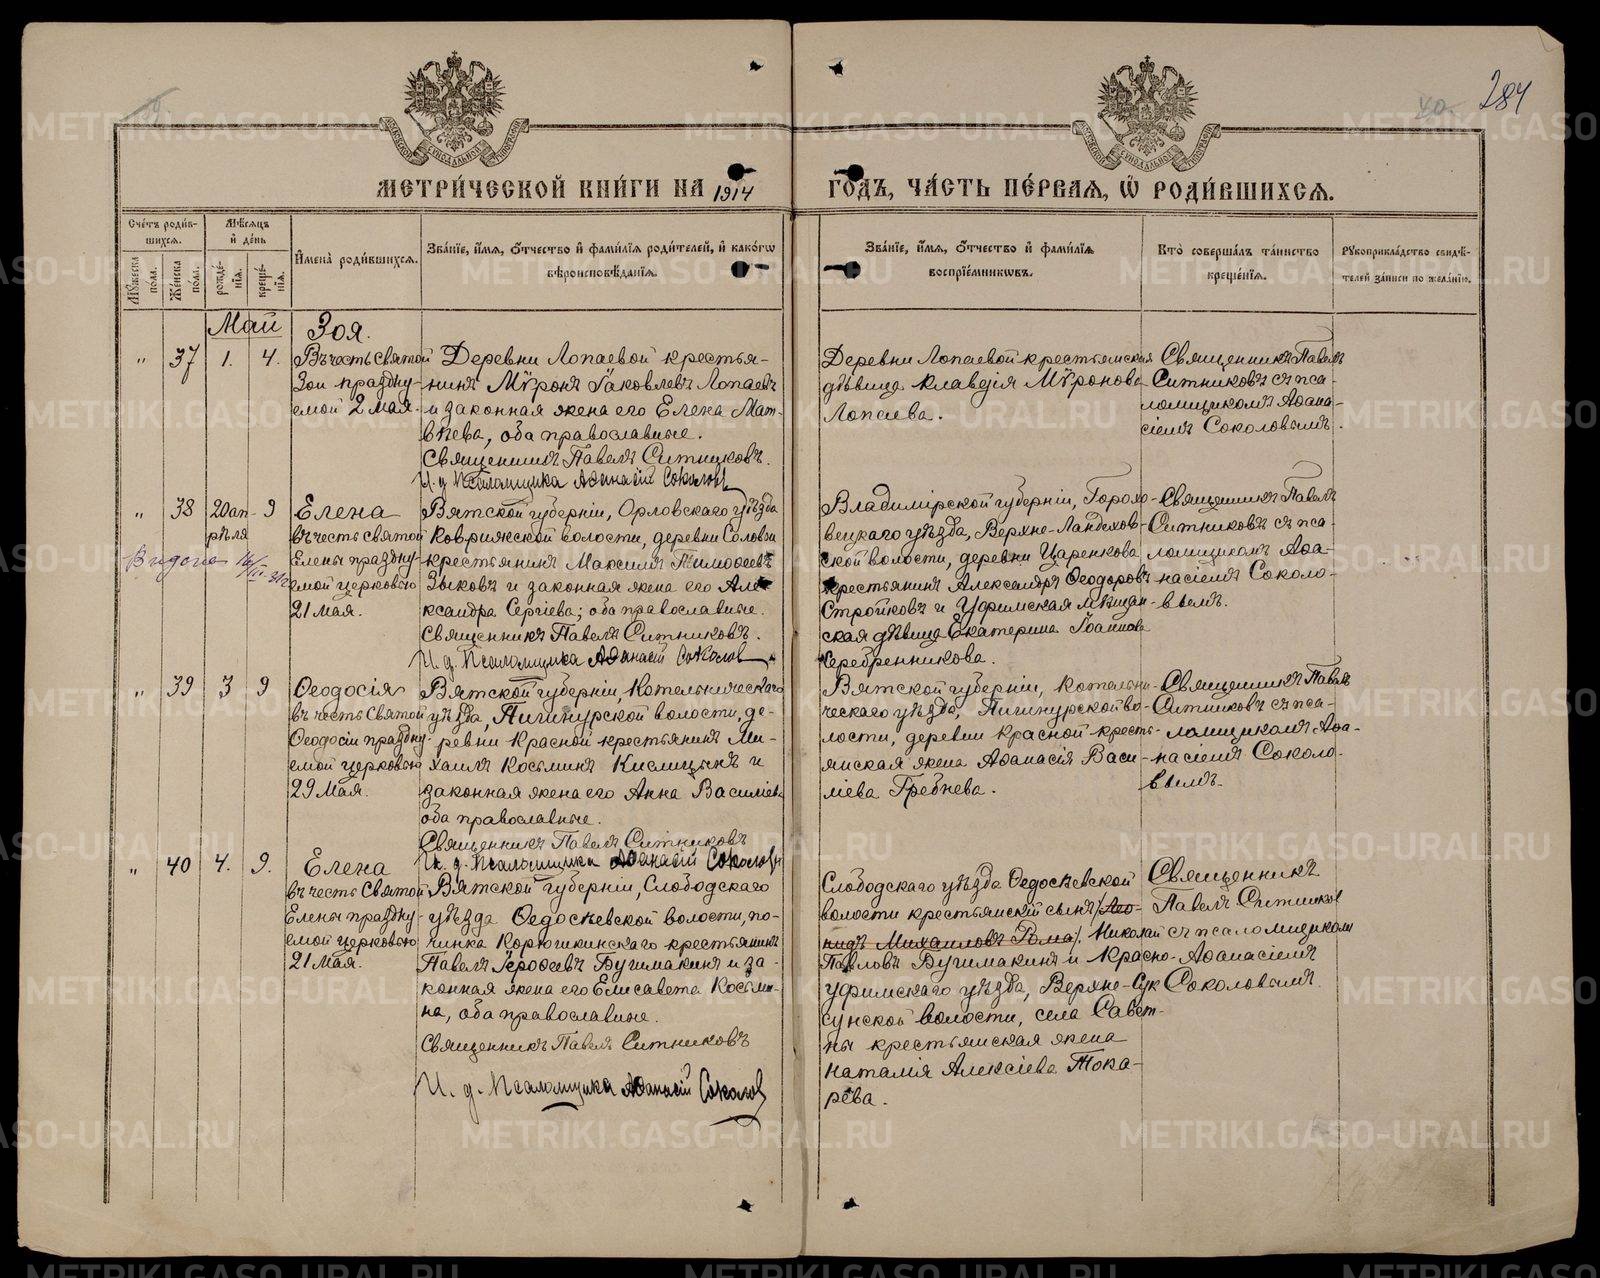 284
МЕТРИ́ЧЕСКОЙ КНИ́ГИ НА 1914 ГО́ДЪ, ЧА́СТЬ ПЕ́РВАЯ, Ѡ РОДИ́ВШИХСѦ.
Сче́тъ роди́вшихсѧ.
Мꙋ́жеска пола.
Же́нска пола.
Мѣ́сяцъ и҆ де́нь
рожде́нїѧ.
креще́нїѧ.
И҆мена̀ роди́вшихсѧ.
Зва́нїе, и҆́мѧ, ѻ҆́тчество и҆ фами́лїѧ роди́телей, и҆ како́гѡ
вѣроисповѣ́данїѧ.
Зва́нїе, и҆́мѧ, ѻ҆́тчество и҆ фами́лїѧ
воспрїе́мникѡвъ.
Кто̀ соверша́лъ та́инство
креще́нїѧ.
Рꙋкоприкла́дство свидѣ́-
телей за́писи по жела́нїю.
Май
" 37 1. 4.
Зоя.
Въ честь святой
Зои праздну-
емой 2 мая.
Деревни Лопаевой крестья-
нинъ Мѵронъ Іаковлевъ Лопаевъ
и законная жена его Елена Мат-
вѣева, оба православные.
Священникъ Павелъ Ситниковъ.
И. д. Псаломщика Аѳанасій Соколовъ
Деревни Лопаевой крестьянская
дѣвица Клавдія Мѵронова
Лопаева.
Священникъ Павелъ
Ситниковъ съ пса-
ломщикомъ Аѳана-
сіемъ Соколовымъ.
" 38 20 ап-
рѣля 9
Елена
въ честь святой
Елены праздну-
емой церковью
21 мая.
Вятской губерніи, Орловскаго уѣзда
Ковржской волости, деревни Соловьи
крестьянинъ Максимъ Тимоѳеевъ
Зыковъ и законная жена его Але-
ксандра Сергіева; оба православные.
Священникъ Павелъ Ситниковъ.
И. д. Псаломщика Аѳанасій Соколовъ
Владимірской губерніи, Горохо-
вецкаго уѣзда, Верхне-Ландехов-
ской волости, деревни Царенкова
крестьянинъ Александръ Ѳеодоровъ
Стройковъ и Уфимская мѣщан-
ская дѣвица Екатерина Іоаннова
Серебренникова.
Священникъ Павелъ
Ситниковъ съ пса-
ломщикомъ Аѳа-
насіемъ Соколо-
вымъ.
" 39 3 9
Ѳеодосія
въ честь Святой
Ѳеодосіи праздну-
емой церковью
29 Мая.
Вятской губерніи, Котельническаго
уѣзда, Пигинурской волости, де-
ревни Красной крестьянинъ Ми-
хаилъ Косьминъ Кислицынъ и
законная жена его Анна Василіева
оба православные.
Священникъ Павелъ Ситниковъ
И. д. Псаломщика Аѳанасій Соколовъ
Вятской губерніи, Котельни-
ческаго уѣзда, Пигинурской во-
лости, деревни Красной кресть-
янская жена Аѳанасія Васи-
ліева Гребнева.
Священникъ Павелъ
Ситниковъ съ пса-
ломщикомъ Аѳа-
насіемъ Соколо-
вымъ.
" 40 4. 9.
Елена
въ честь Святой
Елены праздну-
емой церковью
21 мая.
Вятской губерніи, Слободскаго
уѣзда Ѳедосѣевской волости, по-
чинка Корюгикинскаго крестьянинъ
Павелъ Іероѳеевъ Бушмакинъ и за-
конная жена его Елисавета Косьми-
на, оба православные.
Священникъ Павелъ Ситниковъ
И. д. Псаломщика Аѳанасій Соколовъ
Слободскаго уѣзда Ѳедосѣевской
волости крестьянскій сынъ (Лео-
нидъ Михаиловъ Рома). Николай
Павловъ Бушмакинъ и Красно-
уфимскаго уѣзда, Верхне-Сук
сунской волости, села Совет-
ны крестьянская жена
Наталія Алексіева Тока-
рева.
Священникъ
Павелъ Ситников
съ псаломщикомъ
Аѳанасіемъ
Соколовымъ.
METRIKI.GASO-URAL.RU